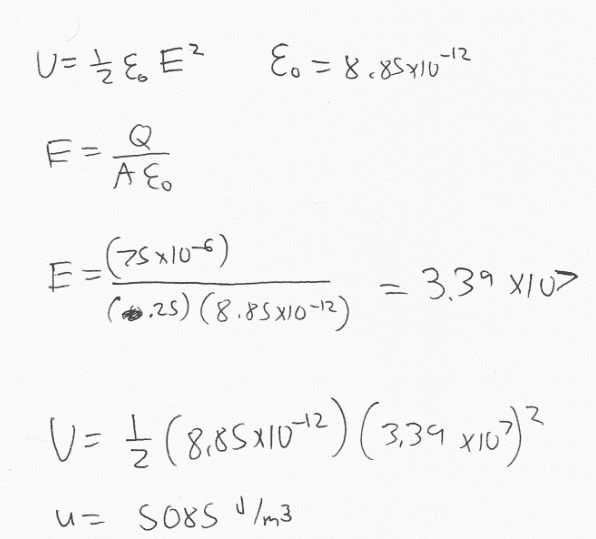 U = 1/2 ε₀ E² ε₀ = 8.85x10⁻¹²
E = Q / A ε₀
E = (75x10⁻⁶) / (.25)(8.85x10⁻¹²) = 3.39 x10⁷
U = 1/2 (8.85x10⁻¹²)(3.39 x10⁷)²
u = 5085 J/m3